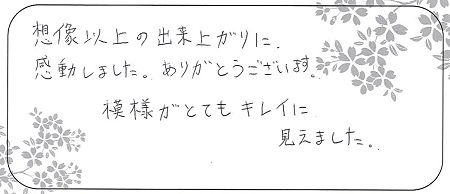 想像以上の出来上がりに、
感動しました。ありがとうございます。
模様がとてもキレイに
見えました。